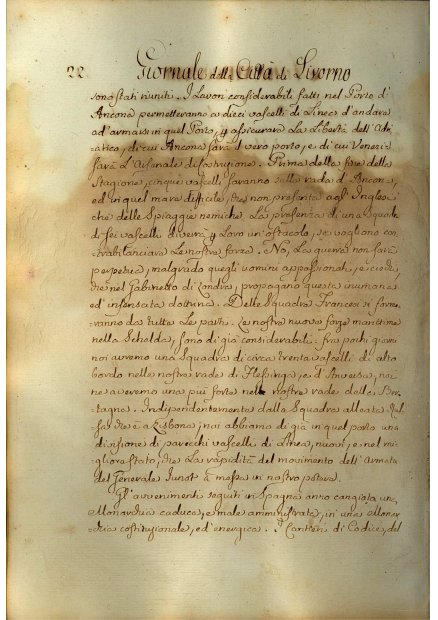 22 Giornale della Città di Livorno
sono stati riuniti. I Lavori considerabili fatti nel Porto d'
Ancona, permetteranno a dieci vascelli di Linea d'andare
ad armarsi in quel Porto, p assicurare La Libertà dell'Adri-
atico, di cui Ancona sarà il vero porto, e di cui Venezia
sarà L'Arsenale di costruzione. Prima della fine della
Stagione, cinque vascelli saranno nella rada d'Ancona,
ed in quel mare difficile, che non presenta agl'Inglesi
che delle Spiaggie nemiche. La presenza di una Squadra
di sei vascelli diverrà p Loro un'ostacolo, se vogliono con-
trabilanciare Le nostre forze. No, La guerra non sarà
perpetua, malgrado quegli uomini appassionati, e ciechi,
che nel Gabinetto di Londra, propagano questa inumana
ed insensata dottrina. Delle Squadre Francesi si forme-
ranno da tutte Le parti. Le nostre nuove forze marittime
nella Schelda, sono di già considerabili. fra pochi giorni
noi avremo una Squadra di circa trenta vascelli di alto
bordo nelle nostre rade di Flessinga, e d'Anversa, noi
ne averemo una più forte nelle nostre rade della Bre-
tagna. Indipendentemente dalla Squadra alleata Rus-
sa, che è a Lisbona, noi abbiamo di già in quel porto una
divisione di parecchi vascelli di Linea, nuovi, e nel mi-
glior stato, che La rapidità del movimento dell'Armata
del Generale Junot à messa in nostro potere.
Gl'avvenimenti seguiti in Spagna anno cangiata una
Monarchia caduca, e male amministrata, in una Monar-
chia costituzionale, ed energica. I Cantieri di Cadice, del